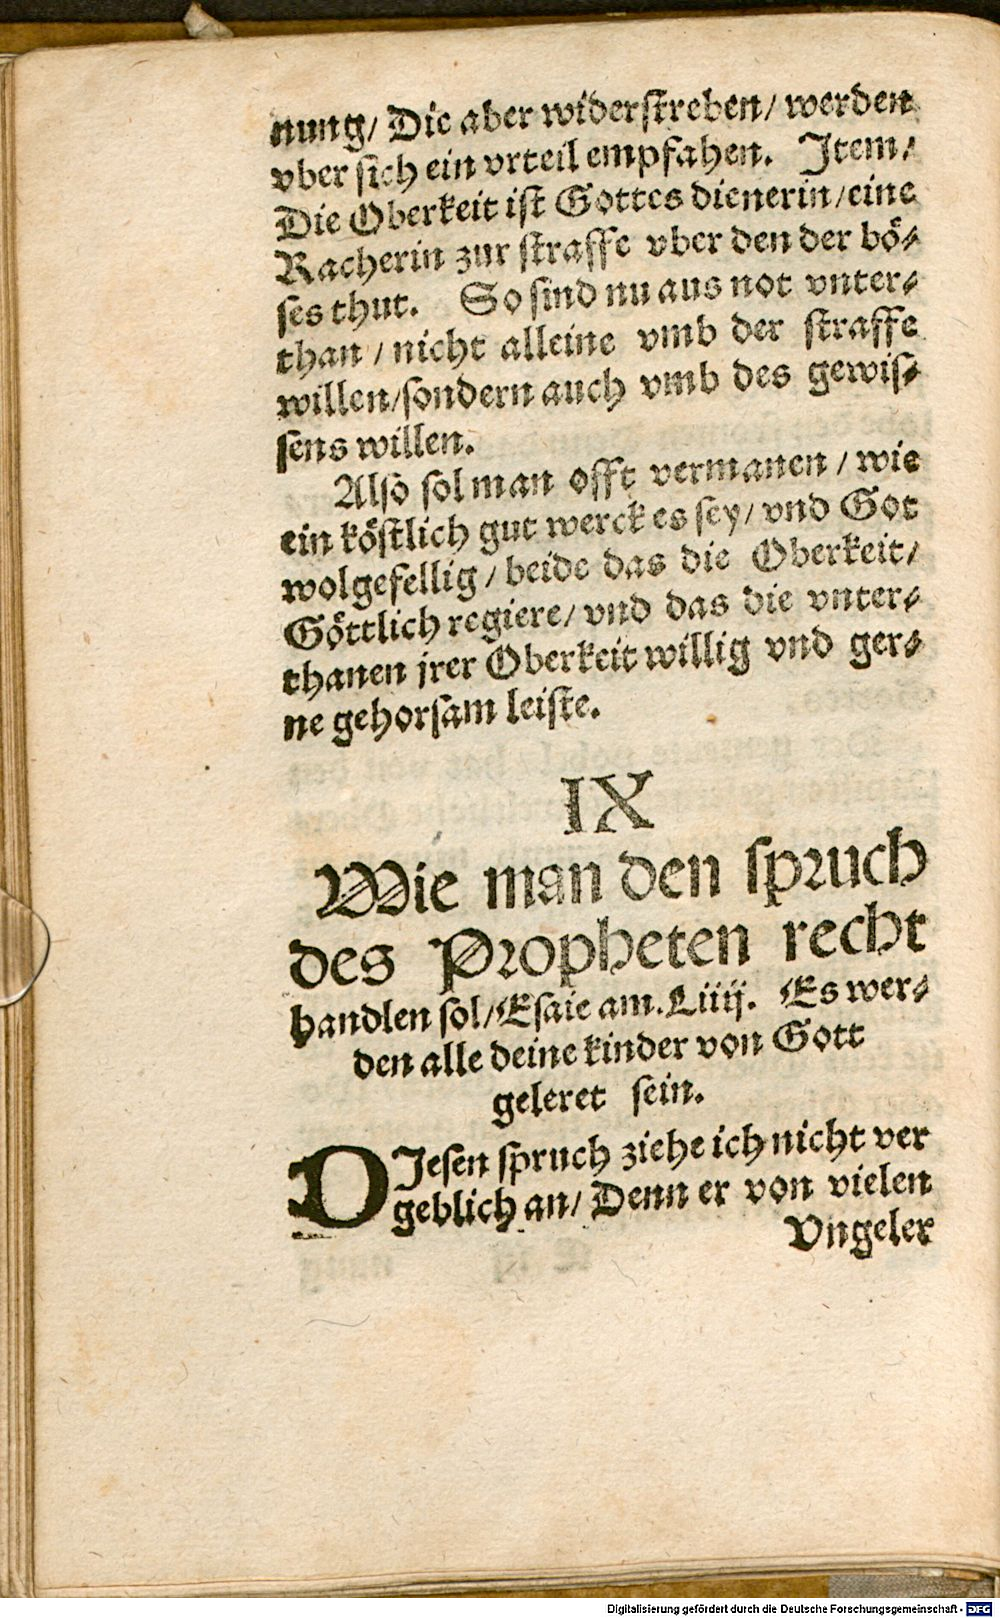 nung/ Die aber widerſtreben/ werden
vber ſich ein vrteil empfahen. Item/
Die Oberkeit iſt Gottes dienerin/eine
Racherin zur ſtraffe vber den der bö⸗
ſes thut. So ſind nu aus not vnter⸗
than / nicht alleine vmb der ſtraffe
willen/ſondern auch vmb des gewiſ⸗
ſens willen.
Alſo ſol man offt vermanen / wie
ein köſtlich gut werck es ſey/ vnd Got
wolgefellig / beide das die Oberkeit/
Göttlich regiere/ vnd das die vnter⸗
thanen jrer Oberkeit willig vnd ger⸗
ne gehorſam leiſte.
IX
Wie man den ſpruch
des Propheten recht
handlen ſol/Eſaie am. Liiij. Es wer⸗
den alle deine kinder von Gott
geleret ſein.
DIeſen ſpruch ziehe ich nicht ver
geblich an/ Denn er von vielen
Vngeler
Digitalisierung gefördert durch die Deutsche Forschungsgemeinschaft - DFG